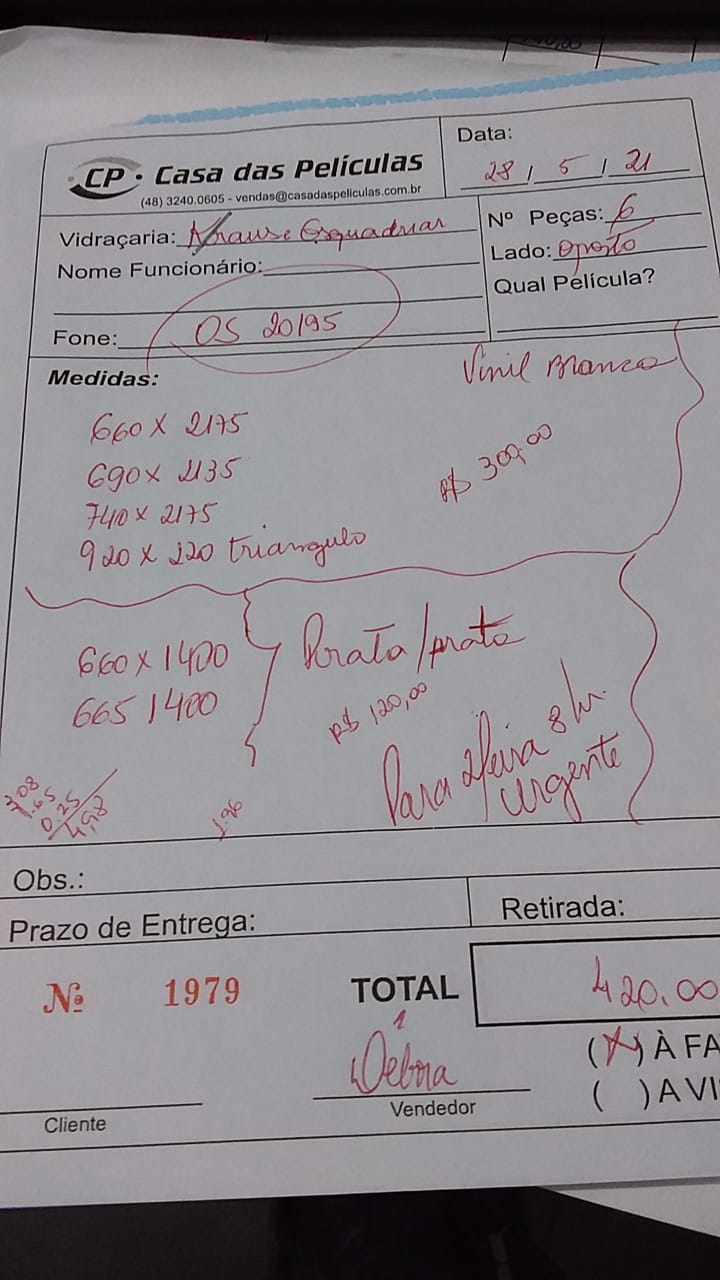 CP • Casa das Películas
(48) 3240.0605 - vendas@casadaspeliculas.com.br
Data:
28 / 5 / 21
Vidraçaria: Krause Esquadrias
Nome Funcionário:
Fone: OS 20195
Nº Peças: 6
Lado: Oposto
Qual Película?
Medidas:
Vinil Branco
660 x 2175
690 x 2135
740 x 2175
920 x 220 triangulo
R$ 300,00
660 x 1400
665 1400
Prata/prata
R$ 120,00
Para 2feira 8 hr.
urgente
1.65
0.25
4,98
1.96
Obs.:
Prazo de Entrega:
Retirada:
Nº 1979
TOTAL
420.00
(X) À FA
( ) A VI
Debora
Cliente
Vendedor